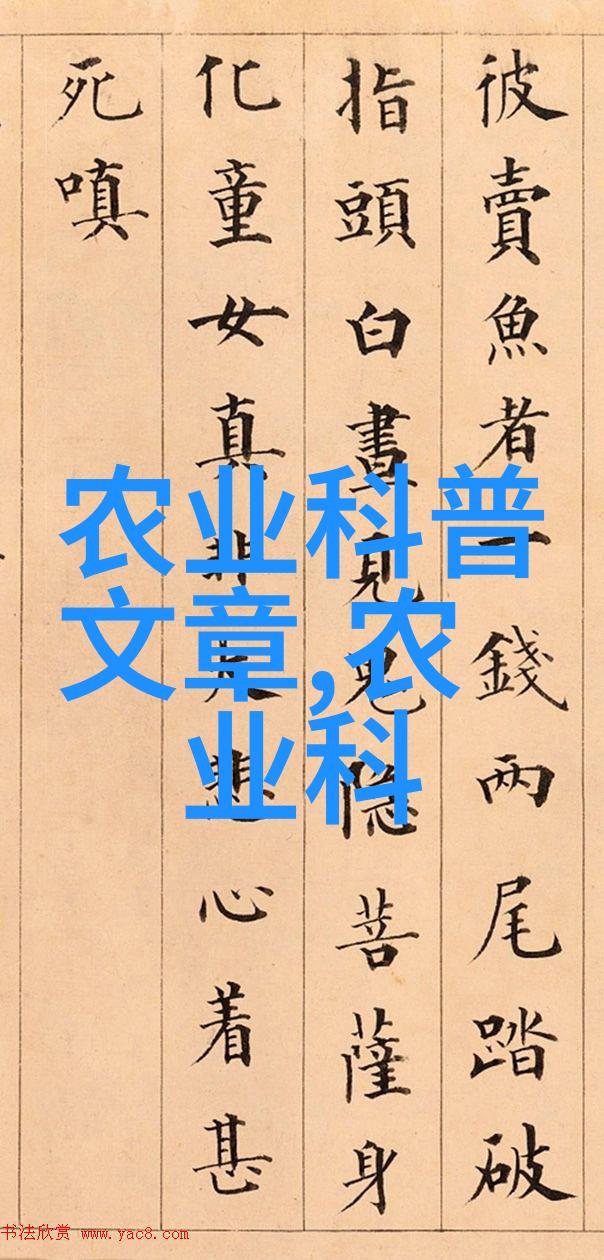 彼賣魚者一錢两尾踏破
指頭白晝見鬼隐菩薩身
化童女真非大悲心着甚
死嗔
农业科普
文章,农
业科
书法欣赏 www.yac8.com